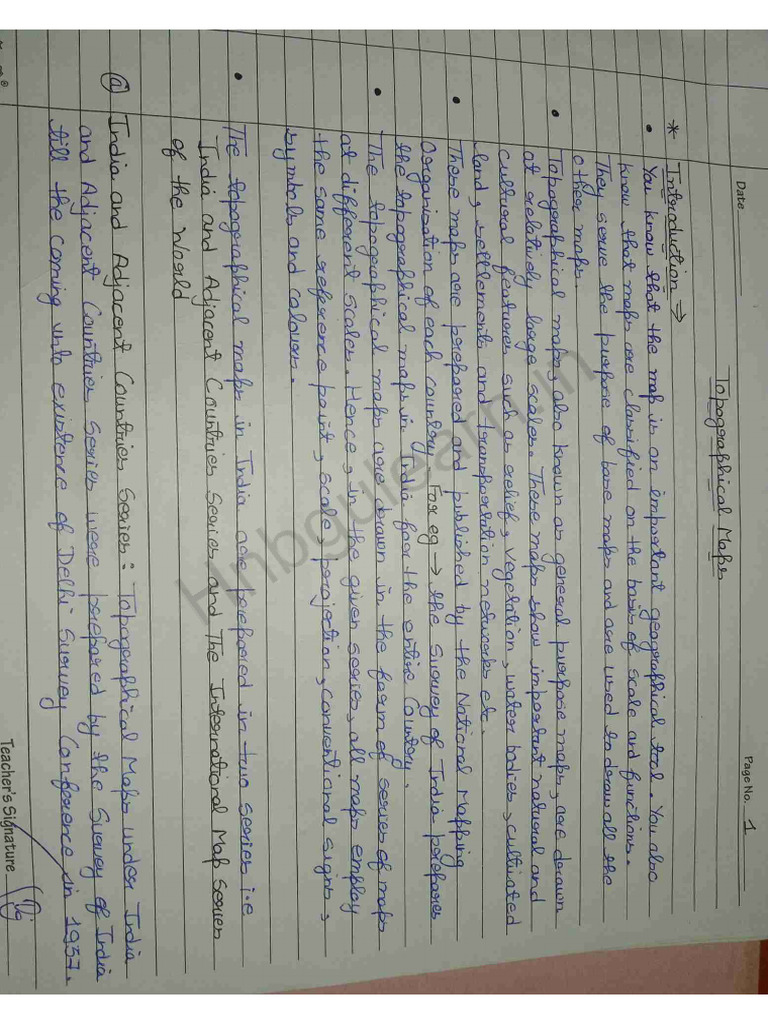 Date
Page No. 1
Topographical Maps
* Introduction →
• You know that the map is an important geographical tool. You also
know that maps are classified on the basis of scale and functions.
They serve the purpose of base maps and are used to draw all the
other maps.
• Topographical maps, also known as general purpose maps, are drawn
at relatively large scales. These maps show important natural and
cultural features such as relief, vegetation, water bodies, cultivated
land, settlements and transportation networks etc.
• These maps are prepared and published by the National Mapping
Organisation of each country. For eg → the Survey of India prepares
the topographical maps in India for the entire Country.
• The topographical maps are drawn in the form of series of maps
at different scales. Hence, in the given series, all maps employ
the same reference point, scale, projection, conventional signs,
symbols and colours.
• The topographical maps in India are prepared in two series i.e
India and Adjacent Countries Series and The International Map Series
of the World
(a) India and Adjacent Countries Series: Topographical Maps under India
and Adjacent Countries Series were prepared by the Survey of India
till the coming into existence of Delhi Survey Conference in 1937.
Teacher's Signature
Hnbgulearn.in